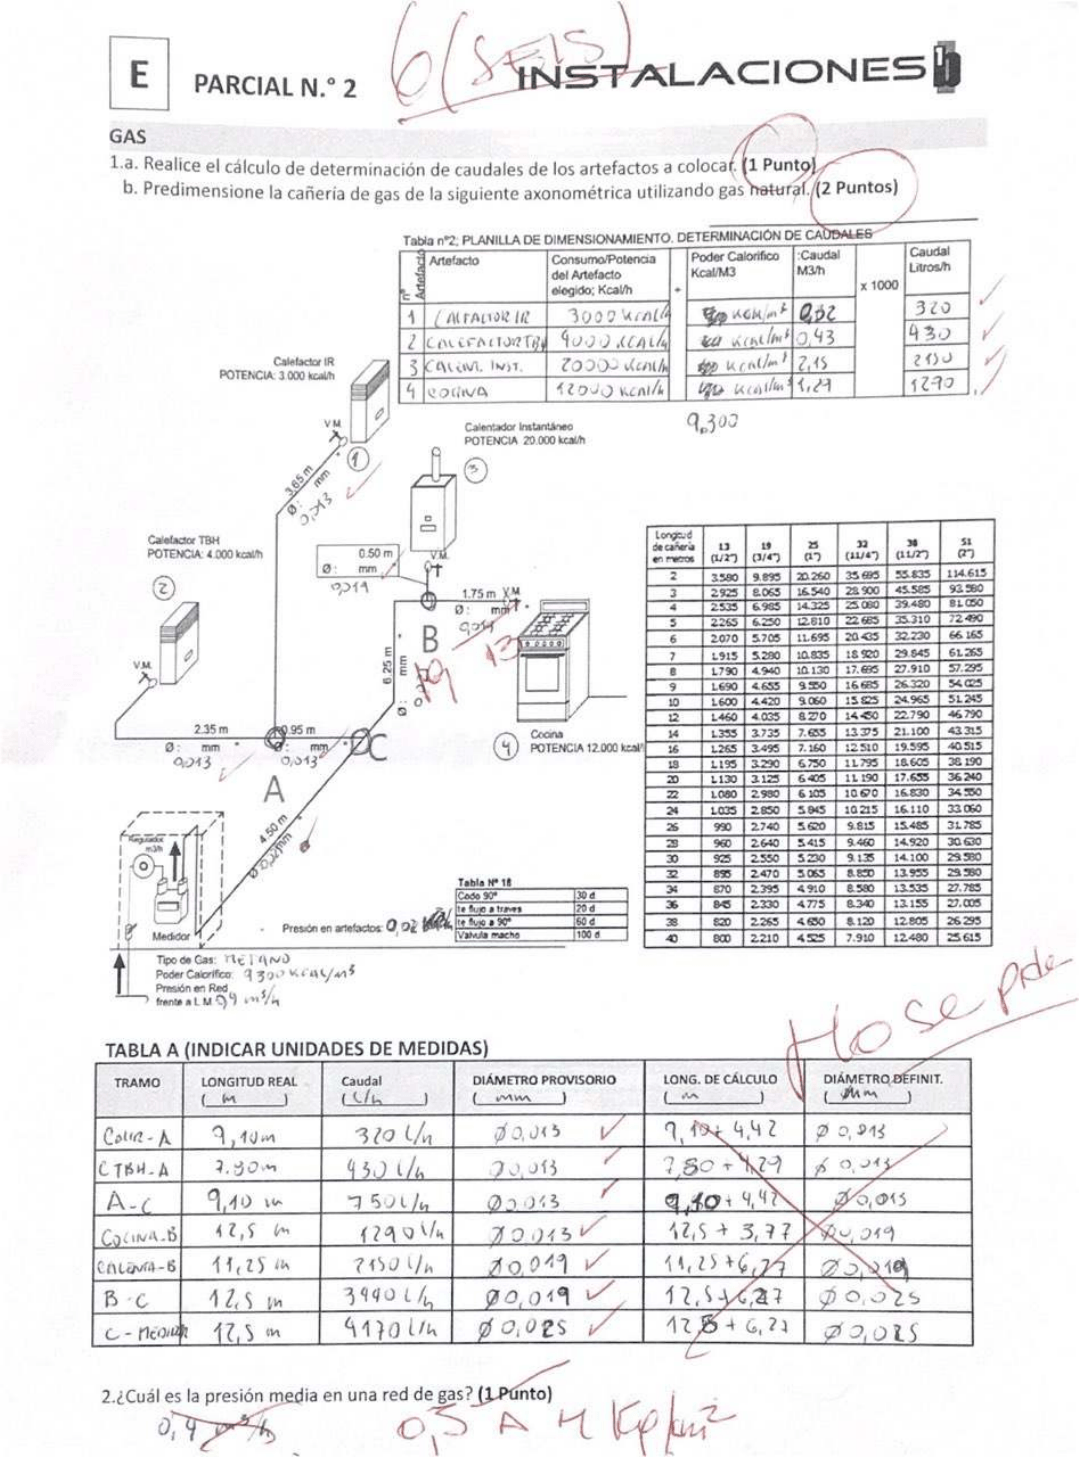 6 (SEIS)
E
PARCIAL N.° 2
INSTALACIONES
GAS
1.a. Realice el cálculo de determinación de caudales de los artefactos a colocar. (1 Punto)
b. Predimensione la cañería de gas de la siguiente axonométrica utilizando gas natural. (2 Puntos)
Tabla n°2; PLANILLA DE DIMENSIONAMIENTO. DETERMINACIÓN DE CAUDALES
n° Artefacto Artefacto Consumo/Potencia del Artefacto elegido; Kcal/h Poder Calorifico Kcal/M3 :Caudal M3/h x 1000 Caudal Litros/h
1 CALFACTOR IR 3000 Kcal/h Kcal/m³ 0,32 320
2 CALEFACTOR TBH 4000 KCAL/h Kcal/m³ 0,43 430
3 CALENT. INST. 20000 Kcal/h Kcal/m³ 2,15 2150
4 COCINA 12000 Kcal/h Kcal/m³ 1,29 1290
9,300
Calefactor IR
POTENCIA: 3.000 kcal/h
V.M.
1
3.65 m
Ø: mm
0,013
Calentador Instantáneo
POTENCIA 20.000 kcal/h
3
Calefactor TBH
POTENCIA: 4.000 kcal/h
2
V.M.
0.50 m
Ø: mm
0,019
V.M.
1.75 m V.M.
Ø: mm
13
B
6.25 m
Ø: mm
19
2.35 m
Ø: mm
0,013
0.95 m
Ø: mm
0,013
C
A
Cocina
4
POTENCIA 12.000 kcal/
4.50 m
Ø: mm
Regulador
m3/h
Medidor
Presión en artefactos: 0,02
Tipo de Gas: METANO
Poder Calorifico: 9300 KCAL/m³
Presión en Red
frente a L.M 0,4 m³/h
Tabla N° 16
Codo 90° 30 d
te flujo a traves 20 d
te flujo a 90° 60 d
Valvula macho 100 d
Longitud de cañería en metros 13 (1/2") 19 (3/4") 25 (1") 32 (11/4") 38 (11/2") 51 (2")
2 3.580 9.895 20.260 35.695 55.835 114.615
3 2.925 8.065 16.540 28.900 45.585 93.580
4 2.535 6.985 14.325 25.080 39.480 81.050
5 2265 6.250 12.810 22.685 35.310 72.490
6 2.070 5.705 11.695 20.435 32.230 66.165
7 1.915 5.280 10.835 18.920 29.845 61.265
8 1.790 4.940 10.130 17.695 27.910 57.295
9 1.690 4.655 9.550 16.685 26.320 54.025
10 1.600 4.420 9.060 15.825 24.965 51.245
12 1.460 4.035 8.270 14.450 22.790 46.790
14 1.355 3.735 7.655 13.375 21.100 43.315
16 1.265 3.495 7.160 12.510 19.595 40.515
18 1.195 3.290 6.750 11.795 18.605 38.190
20 1.130 3.125 6.405 11.190 17.655 36.240
22 1.080 2.980 6.105 10.670 16.830 34.550
24 1.035 2.850 5.845 10.215 16.110 33.060
26 990 2.740 5.620 9.815 15.485 31.785
28 960 2.640 5.415 9.460 14.920 30.630
30 925 2.550 5.230 9.135 14.100 29.580
32 895 2.470 5.065 8.850 13.955 29.580
34 870 2.395 4.910 8.580 13.535 27.785
36 845 2.330 4.775 8.340 13.155 27.005
38 820 2.265 4.650 8.120 12.805 26.295
40 800 2.210 4.525 7.910 12.480 25.615
No se pide
TABLA A (INDICAR UNIDADES DE MEDIDAS)
TRAMO LONGITUD REAL ( m ) Caudal ( L/h ) DIÁMETRO PROVISORIO ( mm ) LONG. DE CÁLCULO ( m ) DIÁMETRO DEFINIT. ( mm )
CalIR - A 9,10m 320 L/h Ø0,013 9,10 + 4,42 Ø 0,013
CTBH-A 7.80m 430 L/h Ø0,013 7,80 + 4,29 Ø 0,013
A-C 9,10 m 750L/h Ø0,013 9,10 + 4,42 Ø0,013
COCINA-B 12,5 m 1290 L/h Ø0,013 12,5 + 3,77 Ø0,019
CALENTA-B 11,25 m 2150 L/h Ø0,019 11,25+6,27 Ø0,019
B-C 12,5 m 3440 L/h Ø0,019 12,5+6,27 Ø0,025
C-MEDIDOR 12,5 m 4170 L/h Ø0,025 12,5 + 6,27 Ø0,025
2.¿Cuál es la presión media en una red de gas? (1 Punto)
0,4 m³/h 0,5 A 4 Kg/cm²